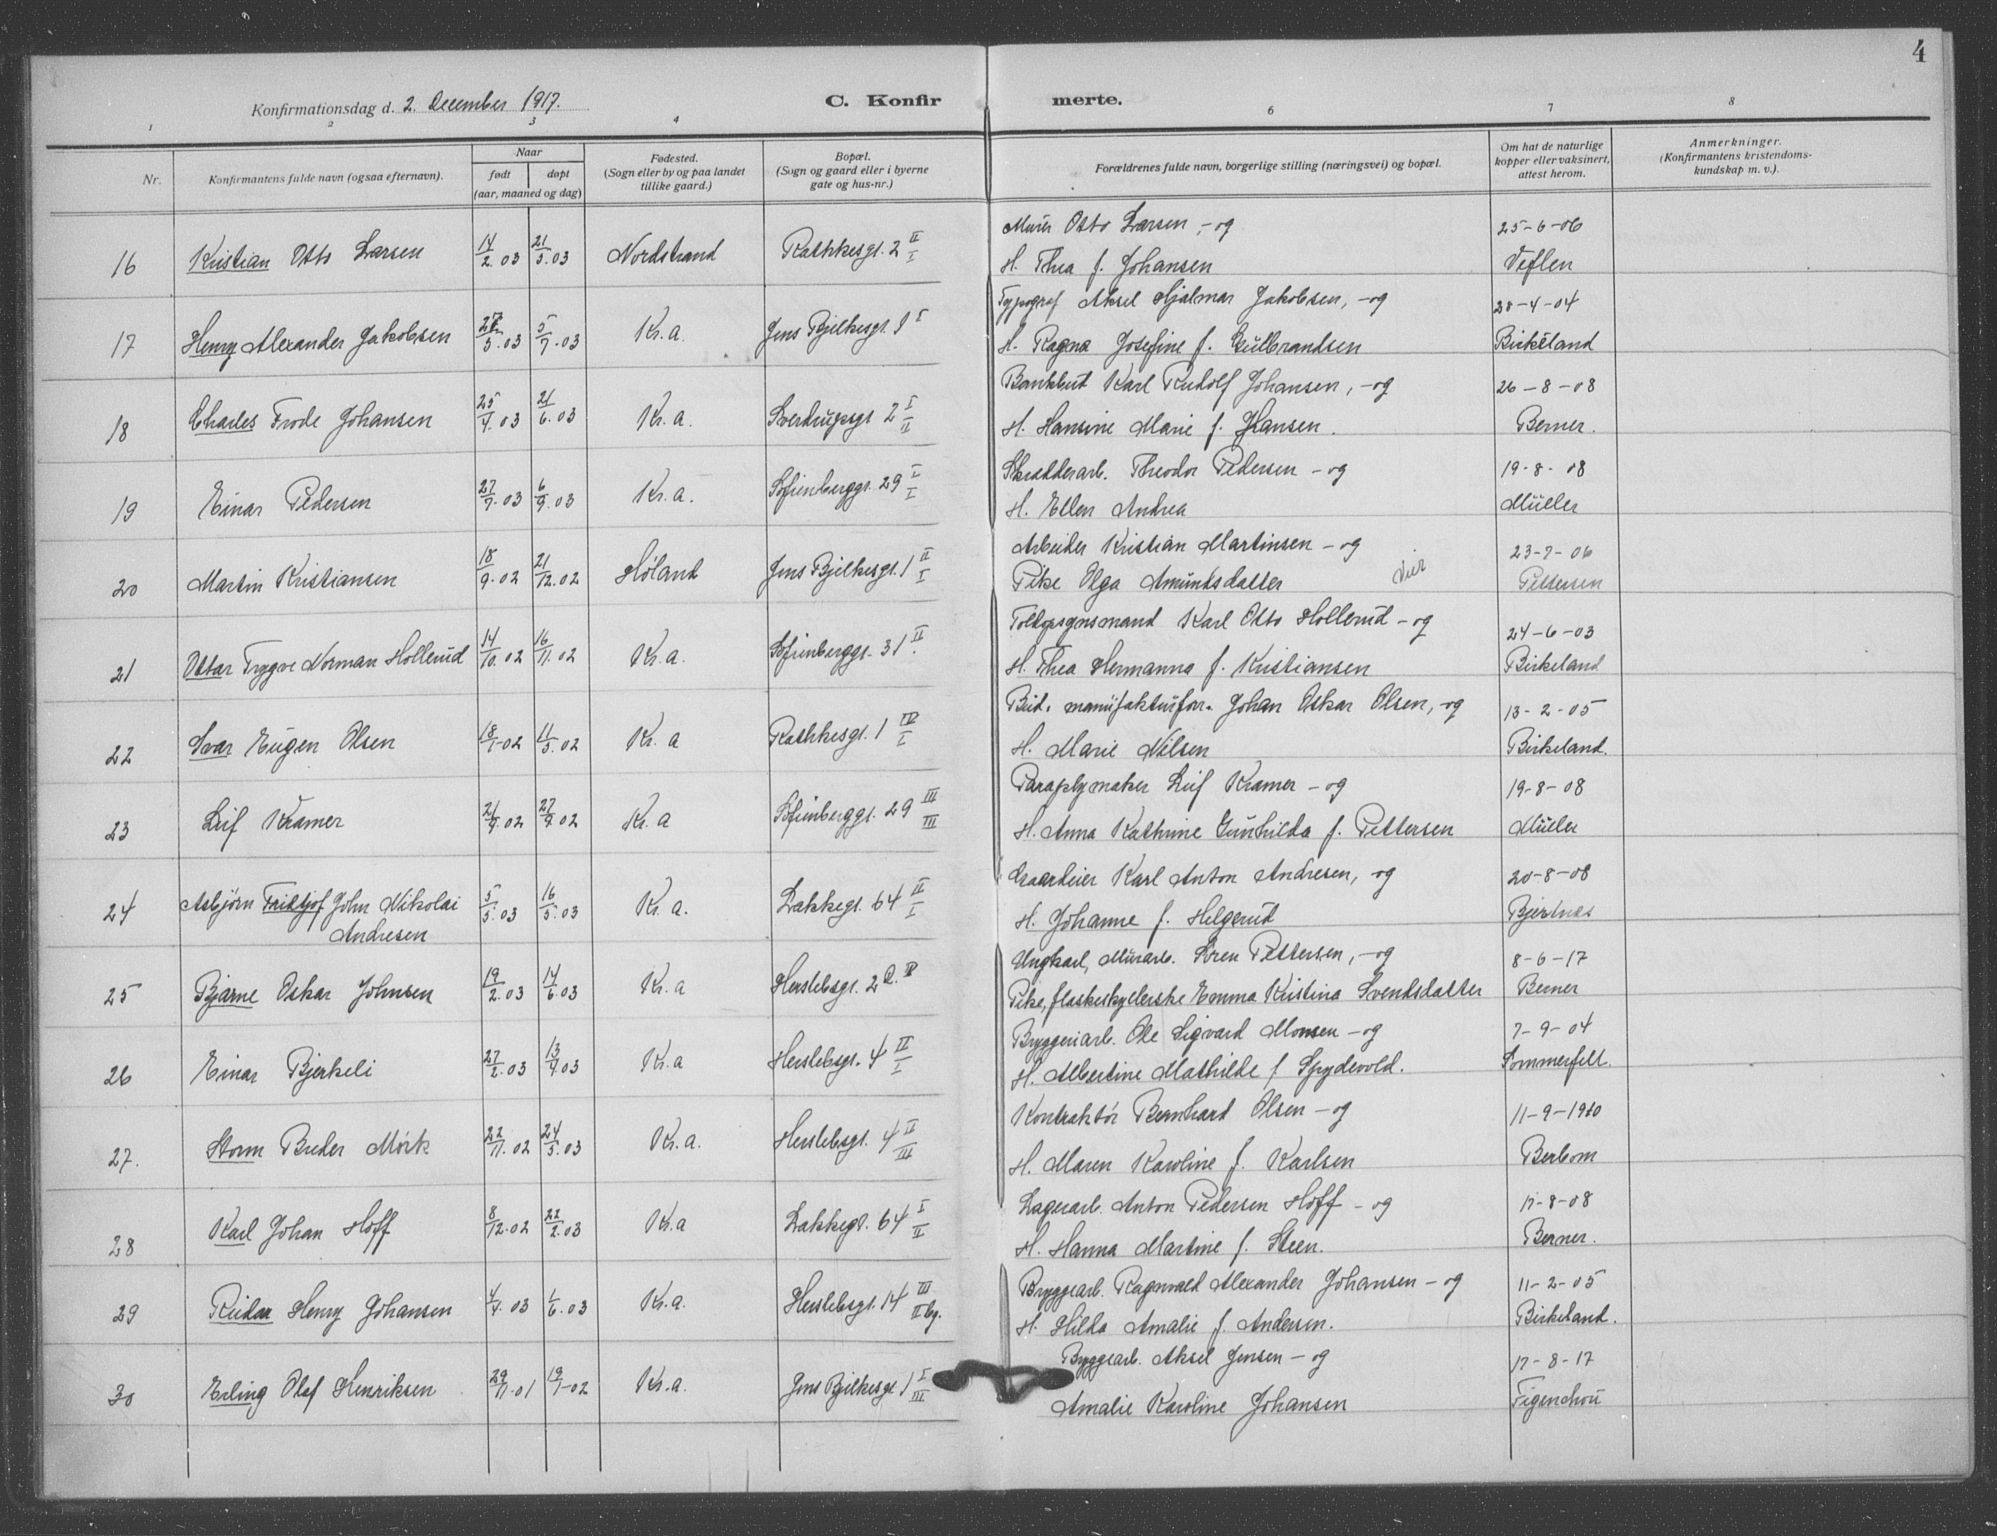 4
Konfirmationsdag d. 2. December 1917.
C. Konfirmerte.
1 2 3 4 6 7 8
Nr.
Konfirmantens fulde navn (ogsaa efternavn).
Naar
født
døpt
(aar, maaned og dag)
Fødested.
(Sogn eller by og paa landet
tillike gaard.)
Bopæl.
(Sogn og gaard eller i byerne
gate og hus-nr.)
Forældrenes fulde navn, borgerlige stilling (næringsvei) og bopæl.
Om hat de naturlige
kopper eller vaksinert,
attest herom.
Anmerkninger.
(Konfirmantens kristendoms-
kundskap m. v.).
16 Kristian Otto Larsen 14/2.03 21/5.03 Nordstrand Rathkesgt. 2 II/I
Murer Otto Larsen, - og 25-6-06
H. Thea f. Johansen Veflen
17 Henry Alexander Jakobsen /5.03 5/7.03 Kr.a. Jens Bjelkesgt. 9 I
Typograf Aksel Hjalmar Jakobsen, - og 28-4-04
H. Ragna Josefine f. Gulbrandsen Birkeland
18 Charles Frode Johansen 25/4.03 21/6.03 Kr.a. Sverdrupsgt 2 I/II
Bankbud Karl Rudolf Johansen, - og 26-8-08
H. Hansine Marie f. Hansen. Berner.
19 Einar Pedersen 27/7.03 6/9.03 Kr.a. Sofienberggt. 29 I/I
Skrædderarb. Theodor Pedersen - og 19-8-08
H. Ellen Andrea Müller
20 Martin Kristiansen 18/9.02 21/12.02 Høland Jens Bjelkesgt. 1 II/I
Arbeider Kristian Martinsen - og 23-7-06
Pike Olga Amundsdatter Pettersen
21 Ottar Trygve Norman Hollerud 14/10.02 16/11.02 Kr.a. Sofienberggt. 31 II.
Toldopsynsmand Karl Otto Hollerud - og 24-6-03
H. Thea Hermanna f. Kristiansen Birkeland
22 Ivar Eugen Olsen 18/1-02 11/5.02 Kr.a Rathkesgt. 1 III/I
Bud. manufakturforr. Johan Oskar Olsen, - og 13-2-05
H. Marie Nilsen Birkeland.
23 Leif Kramer 21/9.02 27/9.02 Kr.a Sofienberggt. 29 III/III
Paraplymaker Leif Kramer - og 19-8-08
H. Anna Kathrine Gunhilda f. Pettersen Müller
24 Asbjørn Fridtjof John Nikolai
Andresen 5/5.03 16/5.03 Kr.a. Lakkegt. 64 II/I
Garveier Karl Anton Andresen, - og 20-8-08
H. Johanne f. Helgerud Bjertnæs
25 Bjarne Oskar Johnsen 19/2.03 14/6.03 Kr.a Herslebsgt. 2
Ungkarl, Murarb. Søren Pettersen, - og 8-6-17
Pike, flaskeskyllerske Emma Kristina Svendsdatter Berner
26 Einar Bjerkeli 27/2.03 13/9.03 Kr.a Herslebsgt. 4 II/I
Bryggeriarb. Ole Sigvard Monsen - og 7-9-04
H. Albertine Mathilde f. Spydevold. Sommerfelt.
27. Storm Breder Mörk 22/11.02 24/5.03 Kr.a. Herslebsgt. 4 II/III
Kontraktør Bernhard Olsen - og 11-9-1910
H. Maren Karoline f. Karlsen Berbom
28 Karl Johan Hoff 8/12.02 22/2.03 Kr.a Lakkegt. 64 I/II
Lagerarb. Anton Pedersen Hoff - og 17-8-08
H. Hanna Martine f. Steen. Berner.
29 Reidar Henry Johansen 4/4.03 1/6.03 Kr.a. Herslebsgt. 14 III/II bg.
Bryggeriarb. Ragnvald Alexander Johansen - og 11-2-05
H. Hilda Amalie f. Andersen. Birkeland.
30 Erling Olaf Henriksen 29/11.01 19/1-02 Kr.a. Jens Bjelkesgt. 1 I/III
Byggearb. Aksel Jensen - og 17-8-17
Amalie Karoline Johansen Figenchou